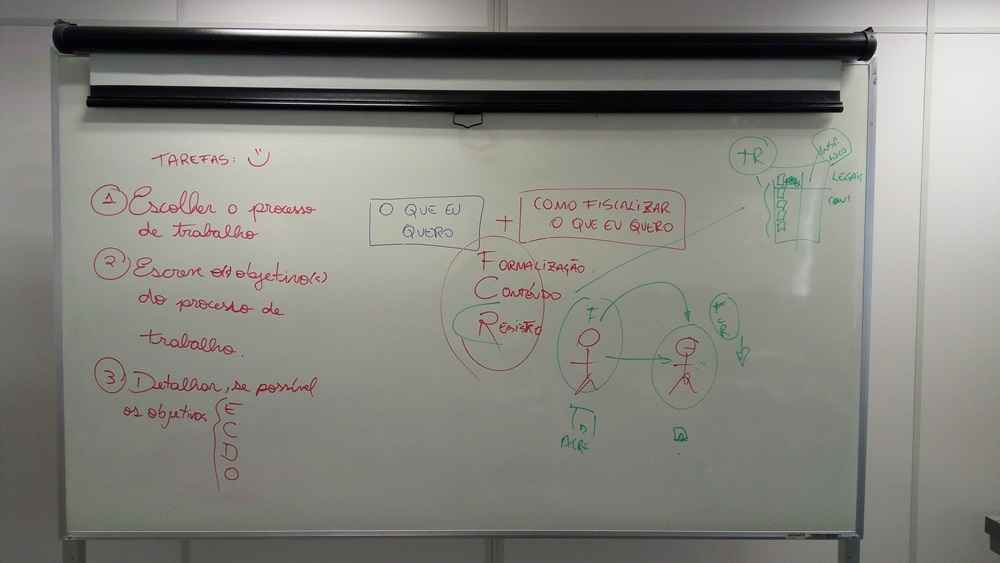 TAREFAS:
1 Escolher o processo
de trabalho
2 Escrever o(s) objetivo(s)
do processo de
trabalho.
3 Detalhar, se possível
os objetivos
E
C
D
O
O QUE EU
QUERO
+
COMO FISCALIZAR
O QUE EU QUERO
FORMALIZAÇÃO
CONTEÚDO
REGISTRO
F
TR
LEGAIS